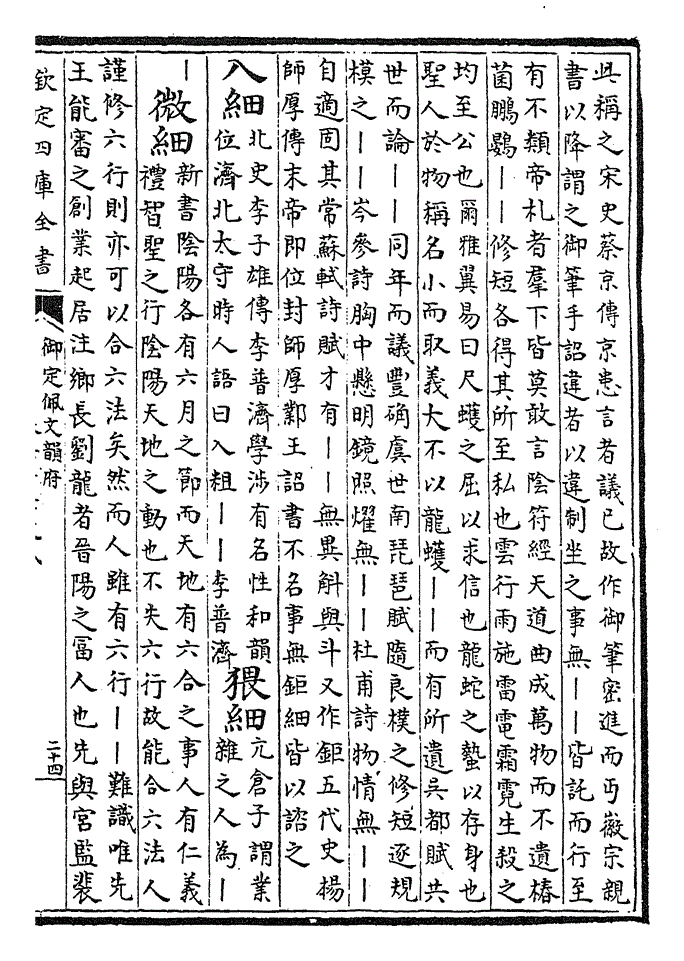 此稱之宋史蔡京傳京患言者議已故作御筆密進而丐徽宗親
書以降謂之御筆手詔違者以違制坐之事無——皆託而行至
有不類帝札者羣下皆莫敢言陰符經天道曲成萬物而不遺椿
菌鵬鷃——修短各得其所至私也雲行雨施雷電霜霓生殺之
均至公也爾雅翼易曰尺蠖之屈以求信也龍蛇之蟄以存身也
聖人於物稱名小而取義大不以龍蠖——而有所遺吳都賦共
世而論——同年而議豐确虞世南琵琶賦隨良樸之修短逐規
模之——岑參詩胸中懸明鏡照燿無——杜甫詩物情無——
自適固其常蘇軾詩賦才有——無異斛與斗又作鉅五代史楊
師厚傳末帝即位封師厚鄴王詔書不名事無鉅細皆以諮之
入細北史李子雄傳李普濟學涉有名性和韻
位濟北太守時人語曰入粗——李普濟
猥細亢倉子謂業
雜之人為—
—
微細新書陰陽各有六月之節而天地有六合之事人有仁義
禮智聖之行陰陽天地之動也不失六行故能合六法人
謹修六行則亦可以合六法矣然而人雖有六行——難識唯先
王能審之創業起居注鄉長劉龍者晉陽之富人也先與宮監裴
欽定四庫全書
御定佩文韻府
二十四